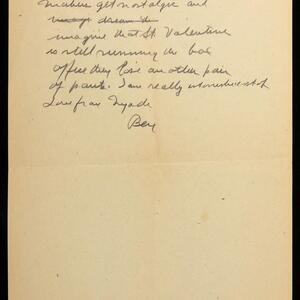 get nostalgic and
imagine that St Valentine
is still running the box
office they lose another pair
of pants. I am really
Love from Nyack
Ben